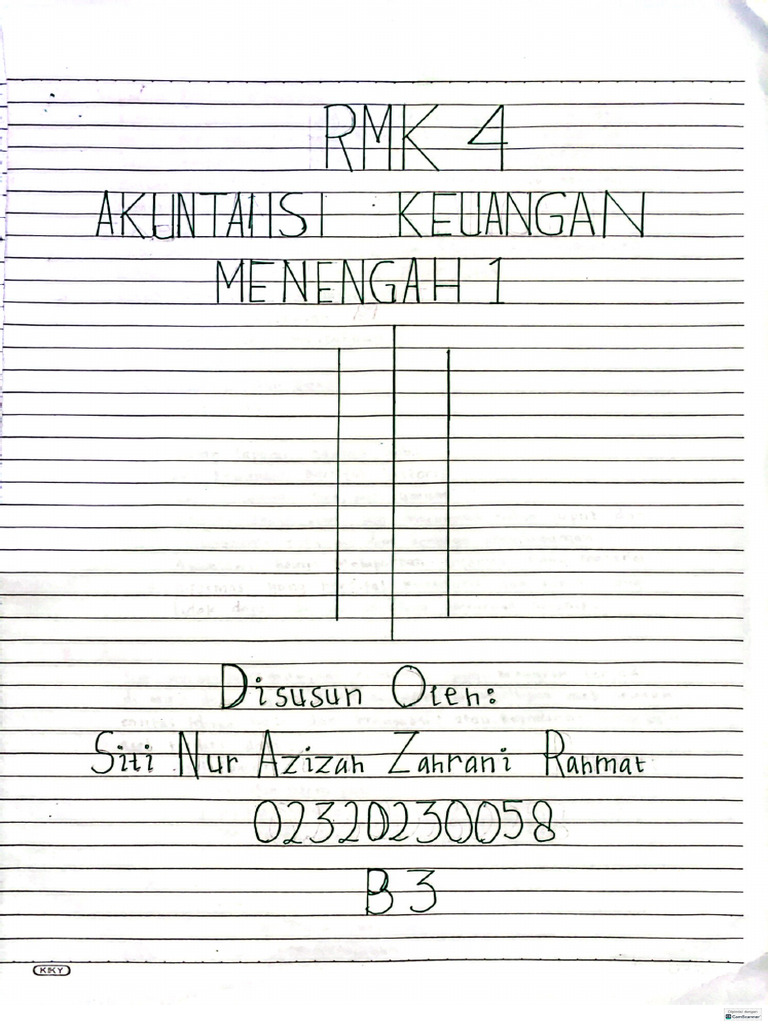 RMK 4
AKUNTANSI KEUANGAN
MENENGAH 1
Disusun Oleh:
Siti Nur Azizah Zahrani Rahmat
02320230058
B3
KIKY
CamScanner